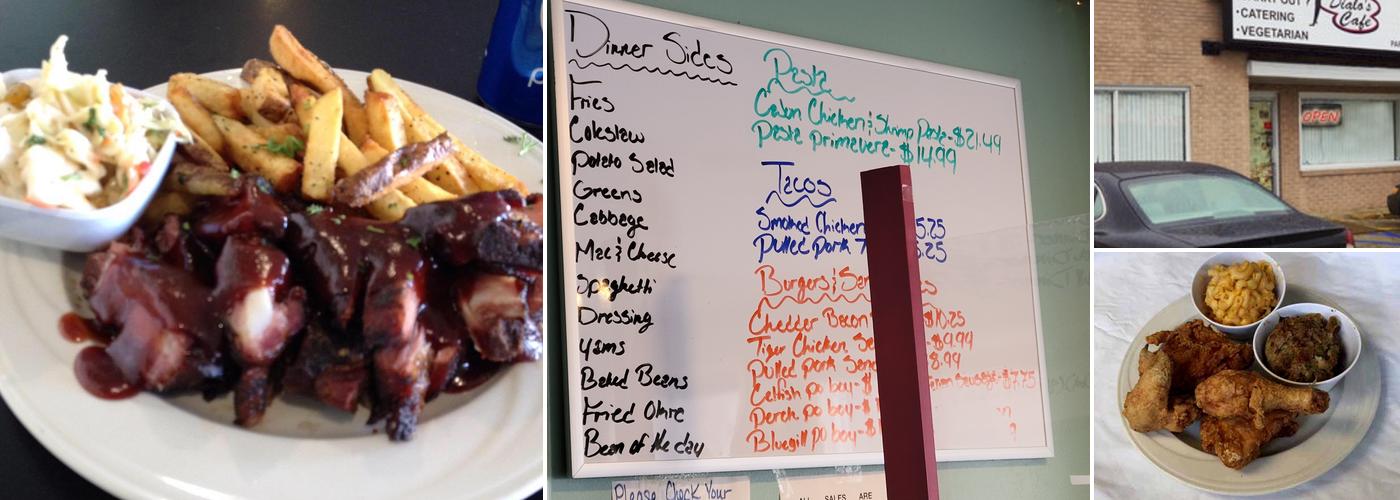 Dinner Sides
Fries
Coleslaw
Potato Salad
Greens
Cabbage
Mac & Cheese
Spaghetti
Dressing
Yams
Baked Beans
Fried Okra
Bean of the day
Pasta
Cajun Chicken & Shrimp Pasta-$21.49
Pasta primavera-$14.99
Tacos
Smoked Chicken 5.25
Pulled Pork 5.25
Burgers &
Cheddar Bacon $10.25
Tiger Chicken $9.99
Pulled Pork 8.99
Catfish po boy-$ Sausage-$7.75
Perch po boy-$
Bluegill po boy-$
Please Check Your
ALL SALES ARE
•CATERING
•VEGETARIAN
Cafe
OPEN